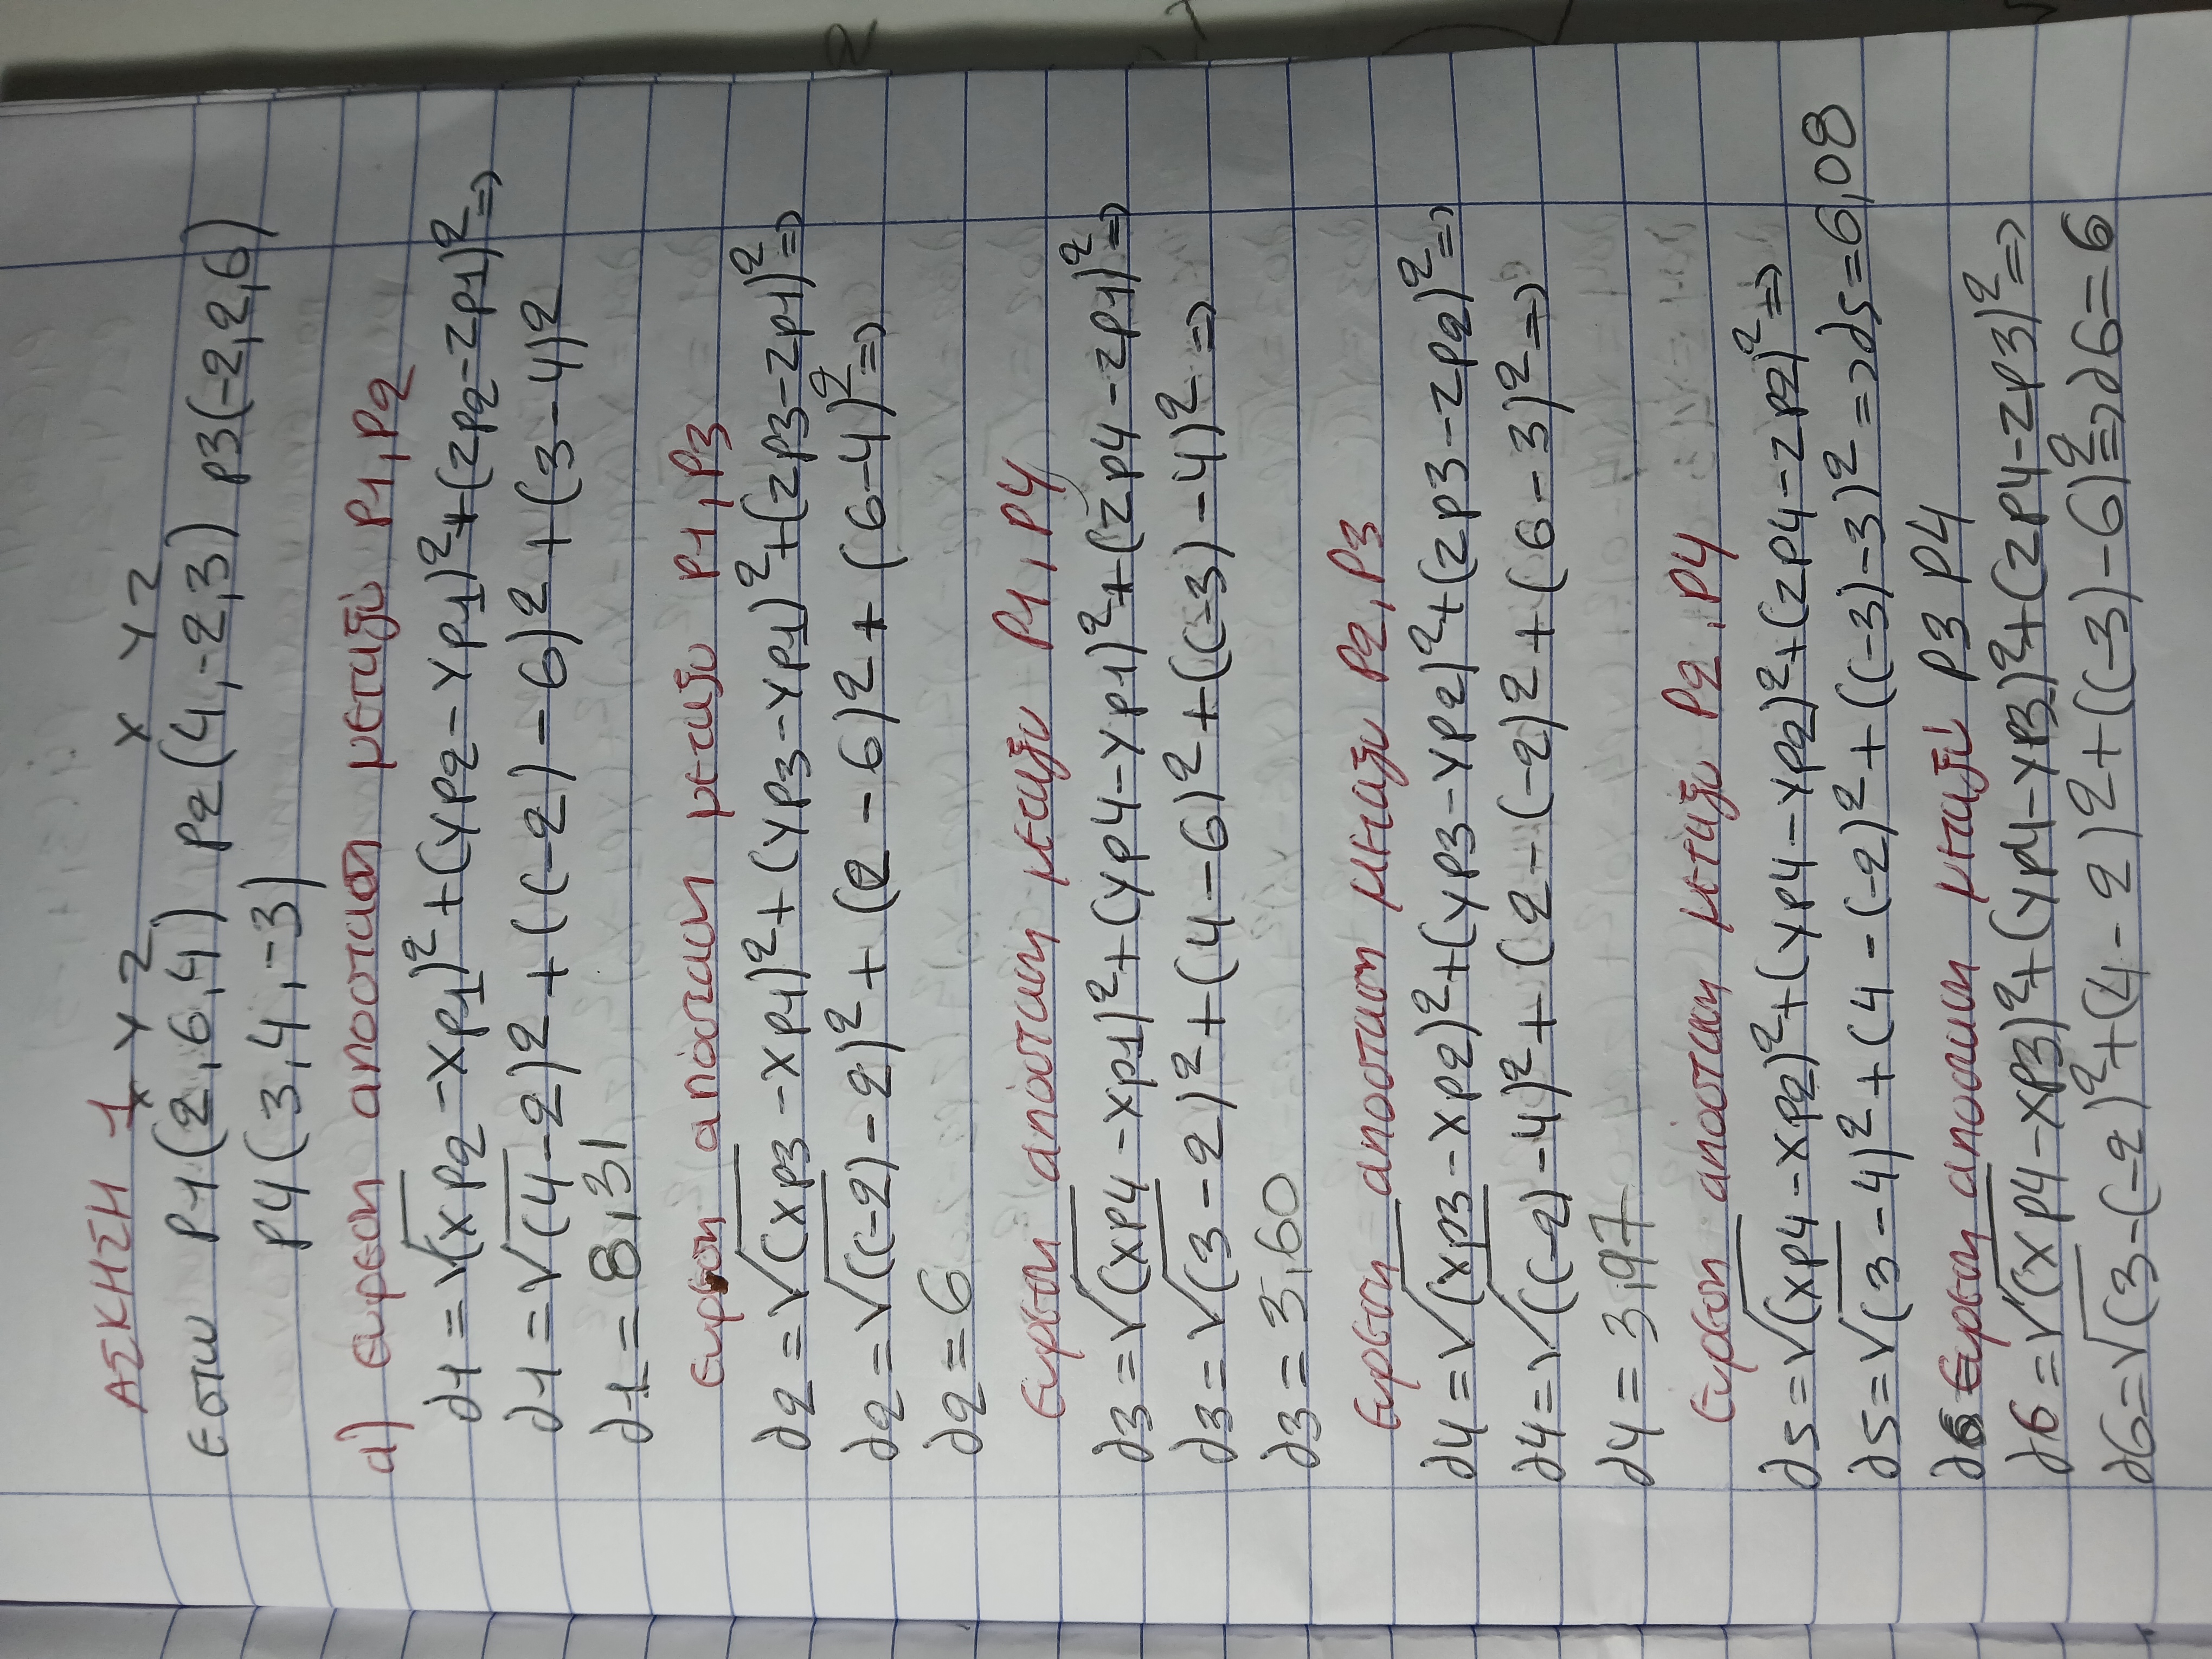 ΑΣΚΗΣΗ 1
X Y Z X Y Z
εστω P1(2,6,4) P2(4,-2,3) P3(-2,2,6)
P4(3,4,-3)
α) ευρεση αποσταση μεταξύ P1,P2
d1=√(xp2-xp1)²+(yp2-yp1)²+(zp2-zp1)²=>
d1=√(4-2)²+((-2)-6)²+(3-4)²
d1=8,31
ευρεση απόσταση μεταξυ P1,P3
d2=√(xp3-xp1)²+(yp3-yp1)²+(zp3-zp1)²=>
d2=√((-2)-2)²+(2-6)²+(6-4)²=>
d2=6
ευρεση απόσταση μεταξυ P1,P4
d3=√(xp4-xp1)²+(yp4-yp1)²+(zp4-zp1)²=>
d3=√(3-2)²+(4-6)²+((-3)-4)²=>
d3=5,60
ευρεση αποσταση μεταξυ P2,P3
d4=√(xp3-xp2)²+(yp3-yp2)²+(zp3-zp2)²=>
d4=√((-2)-4)²+(2-(-2)²+(6-3)²=>
d4=3,97
ευρεση απόσταση μεταξυ P2,P4
d5=√(xp4-xp2)²+(yp4-yp2)²+(zp4-zp2)²=>
d5=√(3-4)²+(4-(-2)²+((-3)-3)²=>d5=6,08
d6 Ευρεση αποσταση μεταξύ P3 P4
d6=√(xp4-xp3)²+(yp4-yp3)²+(zp4-zp3)²=>
d6=√(3-(-2)²+(4-2)²+((-3)-6)²=>d6=6